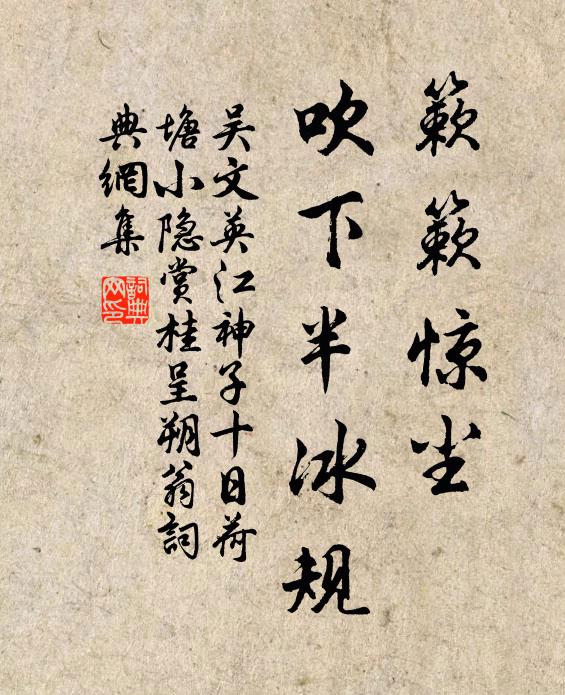 簌簌惊尘
吹下半冰规
吴文英江神子十日荷
塘小隐赏桂呈朔翁詞
典網集
詞典網印